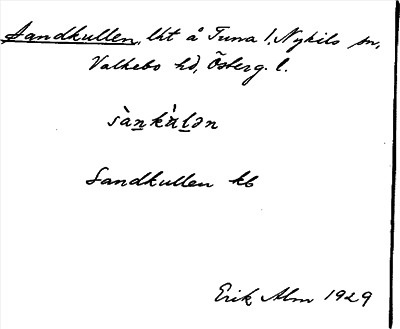 Sandkullen, lht å Tuna 1, Nykils sn,
Valkebo hd, Österg. l.
sàṉkù̱lən
Sandkullen kb
Erik Alm 1929